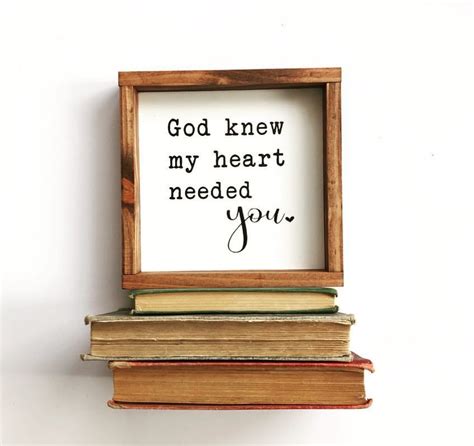 God knew
my heart
needed
you.